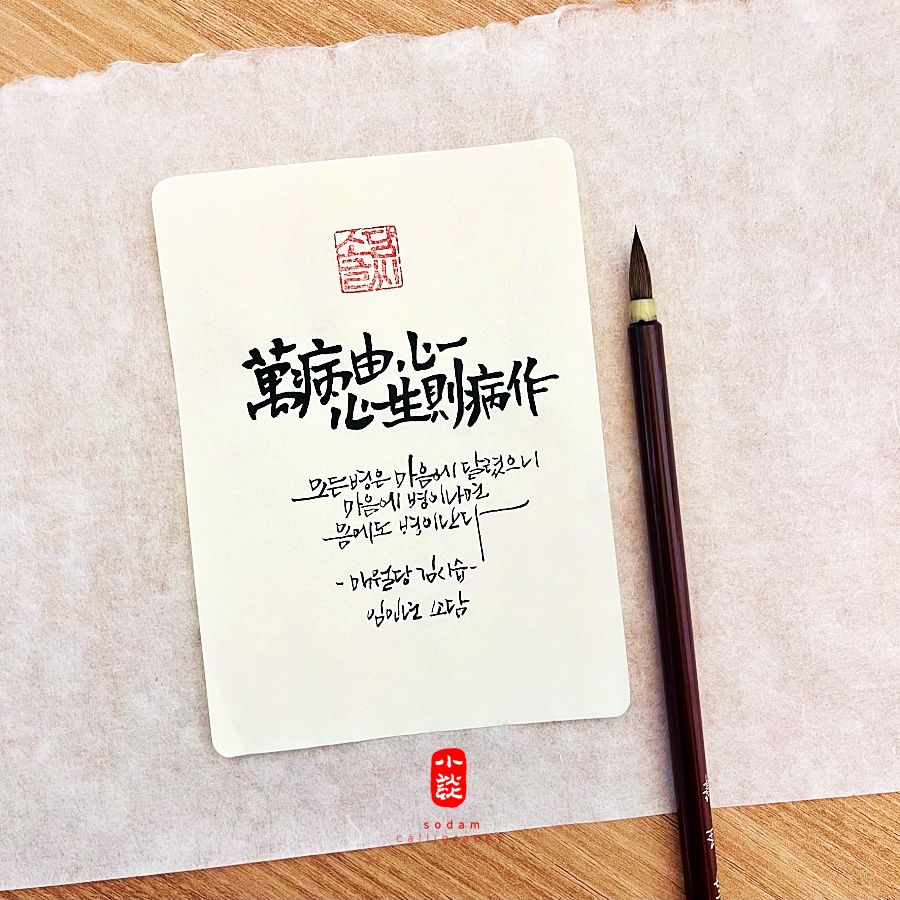 소담
글씨
萬病由心一
心生則病作
모든병은 마음에 달렸으니
마음에 병이나면
몸에도 병이난다
-매월당 김시습-
임인년 소담
小談
sodam
calligraphy